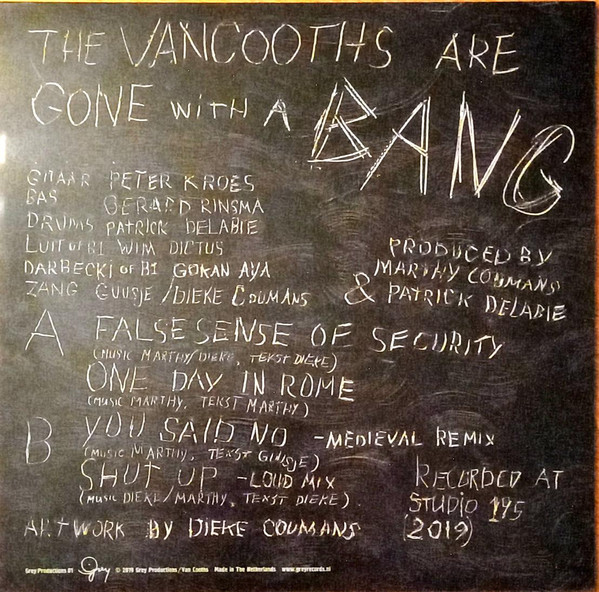 THE VANCOOTHS ARE
GONE WITH A BANG
GITAAR PETER KROES
BAS GERARD RINSMA
DRUMS PATRICK DELABIE
LUIT OF B1 WIM DICTUS
DARBECKI OF B1 GOKAN AYA
ZANG GUUSJE / DIEKE COUMANS
PRODUCED BY
MARTHY COUMANS
& PATRICK DELABIE
A FALSE SENSE OF SECURITY
(MUSIC MARTHY/DIEKE, TEKST DIEKE)
ONE DAY IN ROME
(MUSIC MARTHY, TEKST MARTHY)
B YOU SAID NO - MEDIEVAL REMIX
(MUSIC MARTHY, TEKST GUUSJE)
SHUT UP - LOUD MIX
(MUSIC DIEKE/MARTHY, TEKST DIEKE)
RECORDED AT
STUDIO 195
(2019)
ARTWORK BY DIEKE COUMANS
Grey Productions 01 Grey © 2019 Grey Productions/Van Cooths Made in The Netherlands www.greyrecords.nl